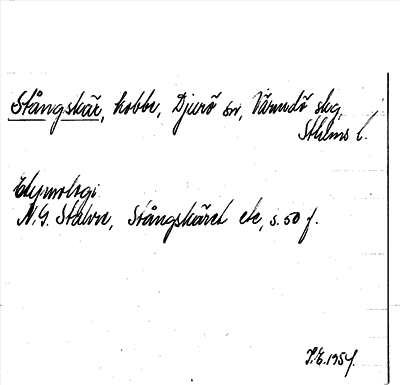 Stångskär, kobbe, Djurö sn, Värmdö skg,
Sthlms l.
Etymologi
N. G. Stahre, Stångskäret etc, s. 50 f.
S. E. 1954.